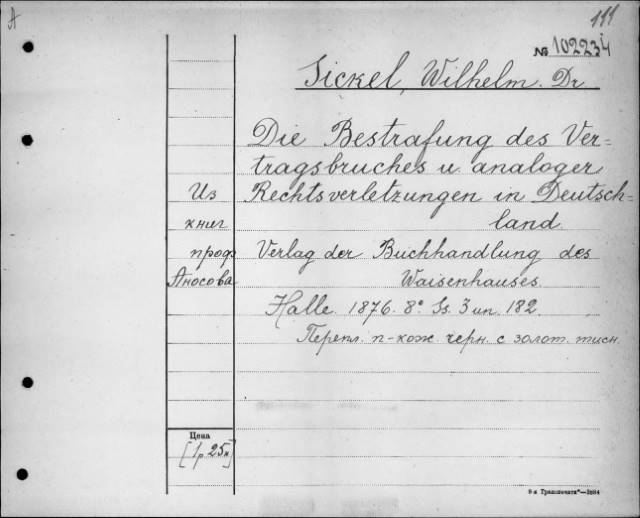 A
111
№ 102234
Sickel, Wilhelm. Dr.
Die Bestrafung des Ver=
tragsbruches u. analoger
Rechtsverletzungen in Deutsch-
land.
Из
книг
проф.
Аносова
Verlag der Buchhandlung des
Waisenhauses.
Halle. 1876. 8° Ss. 3 un. 182.
Перепл. п-кож. черн. с золот. тисн.
Цена
[1р. 25к]